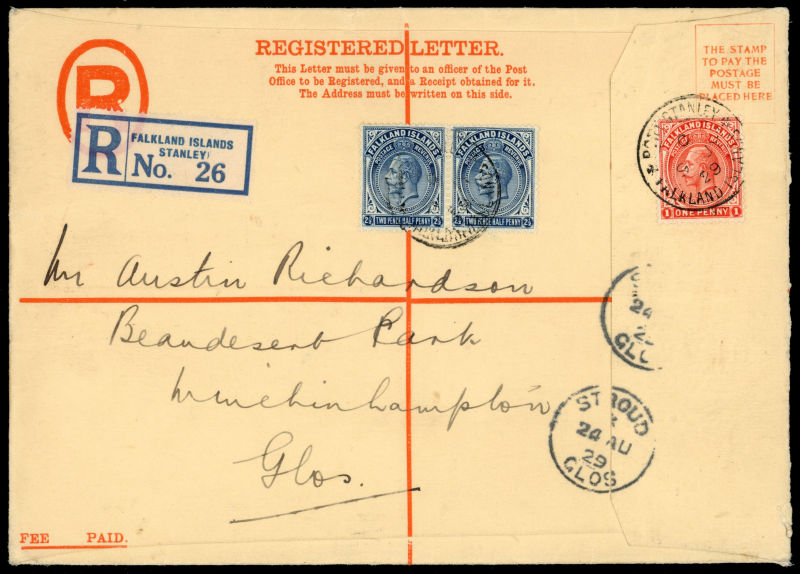 REGISTERED LETTER.
This Letter must be given to an officer of the Post
Office to be Registered, and a Receipt obtained for it.
The Address must be written on this side.
THE STAMP
TO PAY THE
POSTAGE
MUST BE
PLACED HERE
R
R
FALKLAND ISLANDS
STANLEY
No. 26
FALKLAND ISLANDS
POSTAGE REVENUE
2½ TWO PENCE HALF PENNY 2½
FALKLAND ISLANDS
POSTAGE REVENUE
2½ TWO PENCE HALF PENNY 2½
FALKLAND ISLANDS
1 ONE PENNY 1
STANLEY
FALKLAND
Mr Austin Richardson
Beaudesert Park
Minchinhampton
Glos.
24
GLOS
STROUD
24 AU
29
GLOS
FEE PAID.